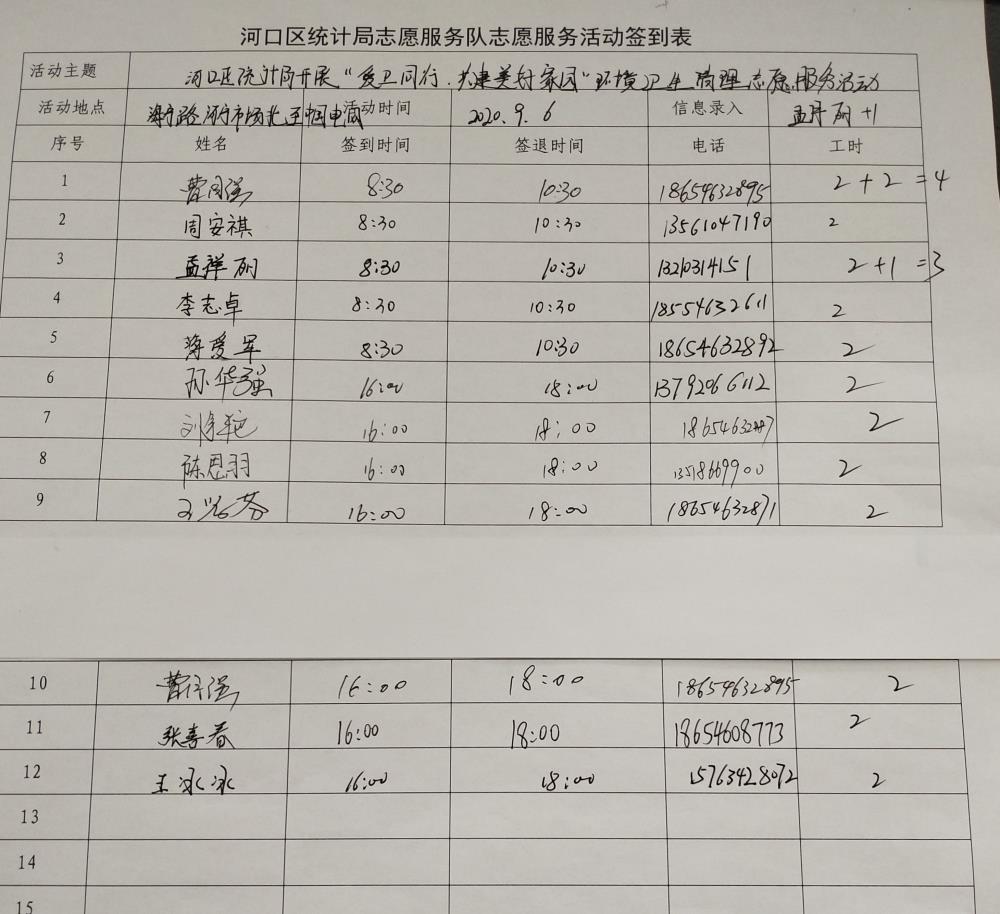 河口区统计局志愿服务队志愿服务活动签到表
活动主题 河口区统计局开展“爱卫同行,共建美好家园”环境卫生清理志愿服务活动
活动地点 河市场北至中国电信 活动时间 2020.9.6 信息录入 孟祥丽+1
序号 姓名 签到时间 签退时间 电话 工时
1 曹同强 8:30 10:30 18654632895 2+2=4
2 周安祺 8:30 10:30 13561047190 2
3 孟祥丽 8:30 10:30 13210314151 2+1=3
4 李志卓 8:30 10:30 18554632611 2
5 蒋爱军 8:30 10:30 18654632892 2
6 孙华强 16:00 18:00 13792066112 2
7 16:00 18:00 18654632887 2
8 陈恩羽 16:00 18:00 13518669900 2
9 16:00 18:00 18654632871 2
10 曹同强 16:00 18:00 18654632895 2
11 张喜春 16:00 18:00 18654608773 2
12 王冰冰 16:00 18:00 15763428072 2
13
14
15